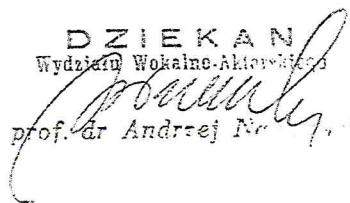 DZIEKAN
Wydziału Wokalno-Aktorskiego
prof. dr Andrzej